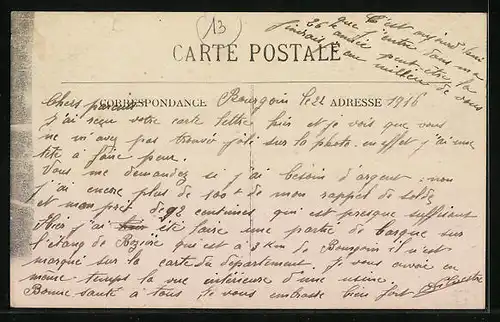 (13)
C'est aujourd'hui
que j'entre dans ma
26e année peut être la
finirais je au milieu de vous
CARTE POSTALE
CORRESPONDANCE
ADRESSE
Bourgoin le 22 1916
Chers parents
j'ai reçu votre carte lettre hier et je vois que vous
ne m'avez pas trouvé joli sur la photo. en effet j'ai une
tête à faire peur.
Vous me demandez si j'ai besoin d'argent : non
j'ai encore plus de 100 de mon rappel de solde
et mon prêt de 92 centimes qui est presque suffisant
Hier j'ai été faire une partie de barque sur
l'étang de qui est à 3 Km de Bourgoin il n'est
marqué sur la carte du département. Je vous envoie en
meme temps la vue intérieure d'une usine.
Bonne santé à tous, Je vous embrasse bien fort